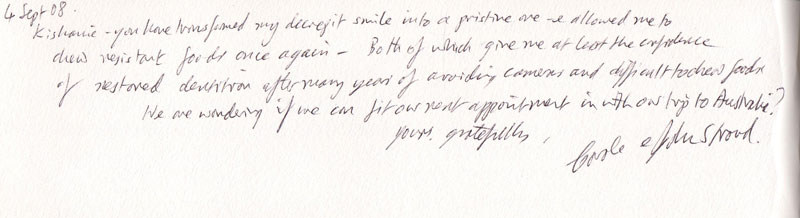 4 Sept 08.
Kishanie - you have transformed my decrepit smile into a pristine one - & allowed me to
chew resistant foods once again - Both of which give me at least the confidence
of restored dentition after many year of avoiding cameras and difficult to chew foods.
We are wondering if we can fit our next appointment in with our trip to Australia?
yours, gratefully,
Carole & John Stroud.